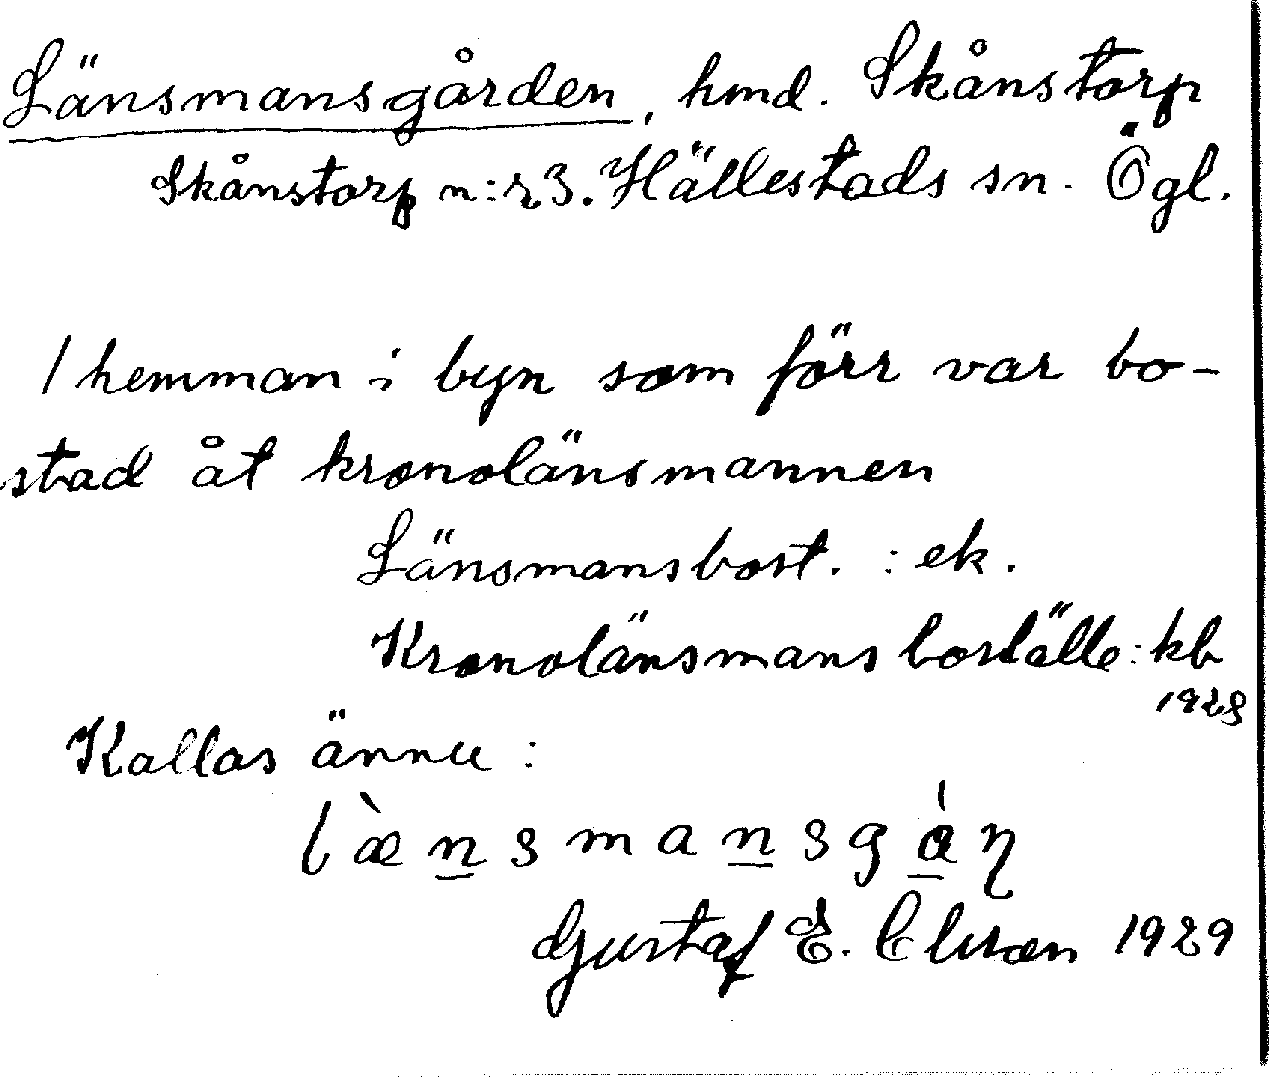 Länsmansgården, hmd. Skånstorp
Skånstorp n:r 3. Hällestads sn. Ögl.
1 hemman i byn som förr var bo-
stad åt kronolänsmannen
Länsmansbost. : ek.
Kronolänsmansboställe: kb
1928
Kallas ännu :
lænsmansgàṇ
Gustaf E. Clason 1929